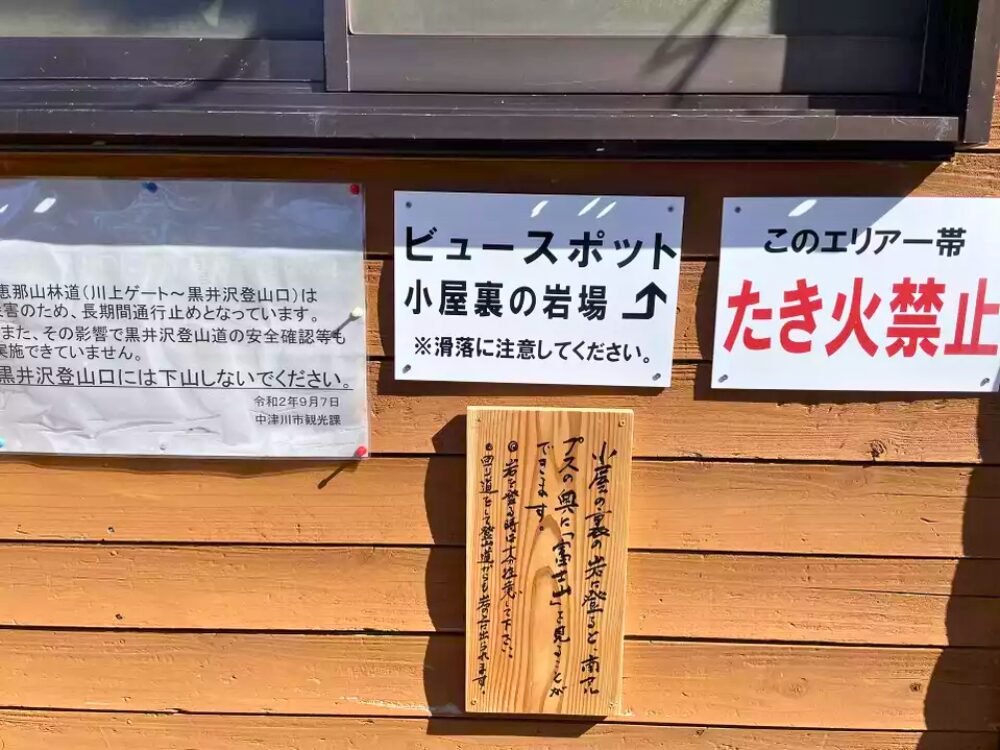 恵那山林道(川上ゲート～黒井沢登山口)は
災害のため、長期間通行止めとなっています。
また、その影響で黒井沢登山道の安全確認等も
実施できていません。
黒井沢登山口には下山しないでください。
令和2年9月7日
中津川市観光課
ビュースポット
小屋裏の岩場
※滑落に注意してください。
このエリア一帯
たき火禁止
小屋の裏の岩に登ると、南アル
プスの奥に「富士山」を見ることが
できます。
◎岩を登る時は十分注意して下さい。
◎回り道をして登山道からも岩の上に出られます。